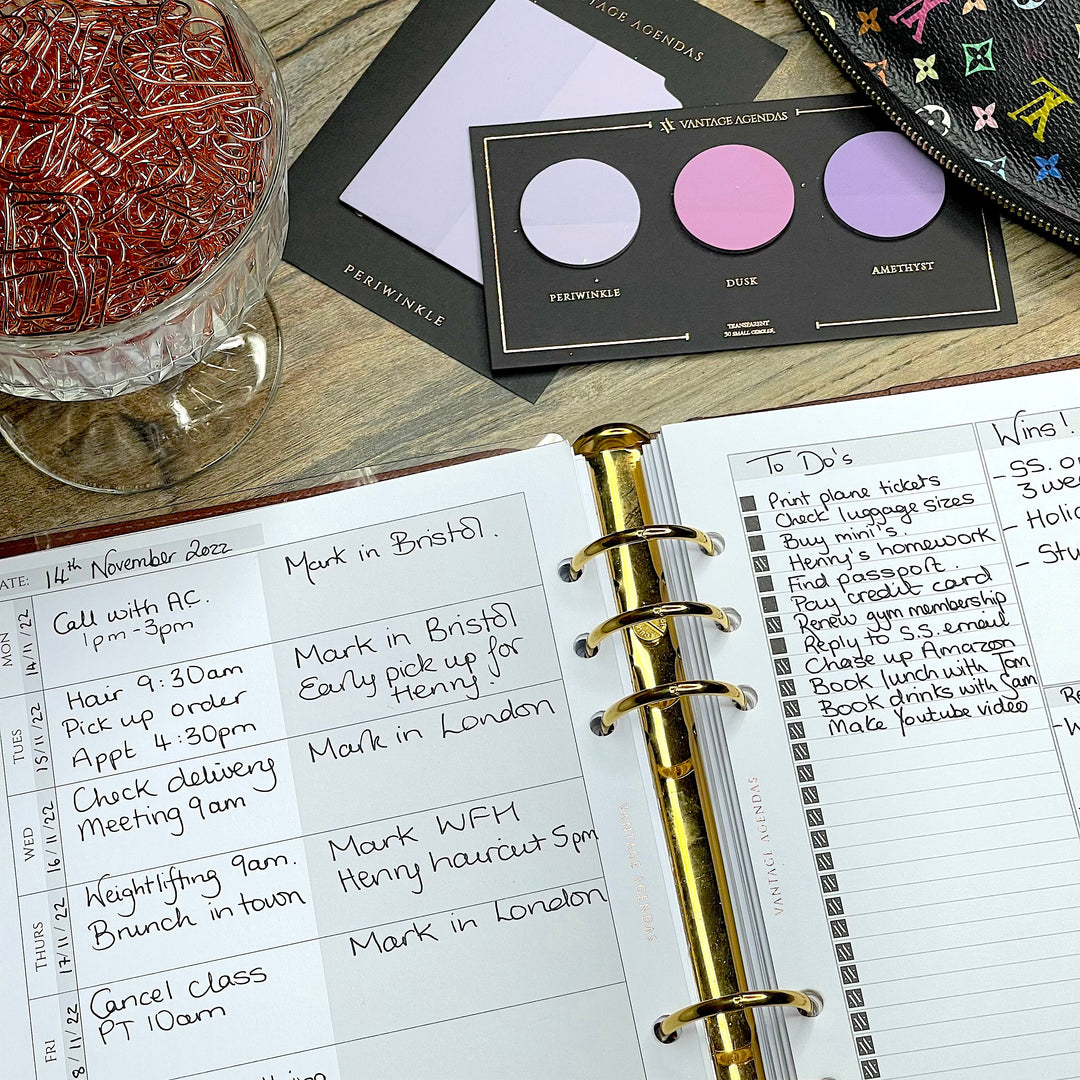 VANTAGE AGENDAS
PERIWINKLE
VANTAGE AGENDAS
PERIWINKLE
DUSK
AMETHYST
TRANSPARENT
DATE: 14th November 2022
MON
14/11/22
Call with AC.
1pm-3pm
Mark in Bristol.
TUES
15/11/22
Hair 9:30am
Pick up order
Appt 4:30pm
Mark in Bristol
Early pick up for
Henry!
WED
16/11/22
Check delivery
Meeting 9am
Mark in London
THURS
17/11/22
Weightlifting 9am.
Brunch in town
Mark WFH
Henry haircut 5pm
FRI
8/11/22
Cancel class
PT 10am
Mark in London
VANTAGE AGENDAS
VANTAGE AGENDAS
To Do's
Print plane tickets
Check luggage sizes
Buy mini's.
Henry's homework
Find passport.
Pay credit card
Renew gym membership
Reply to S.S. email
Chase up Amazon
Book lunch with Tom
Book drinks with Sam
Make Youtube video
Wins!
- SS. o
3 we
- Holi
- Stu